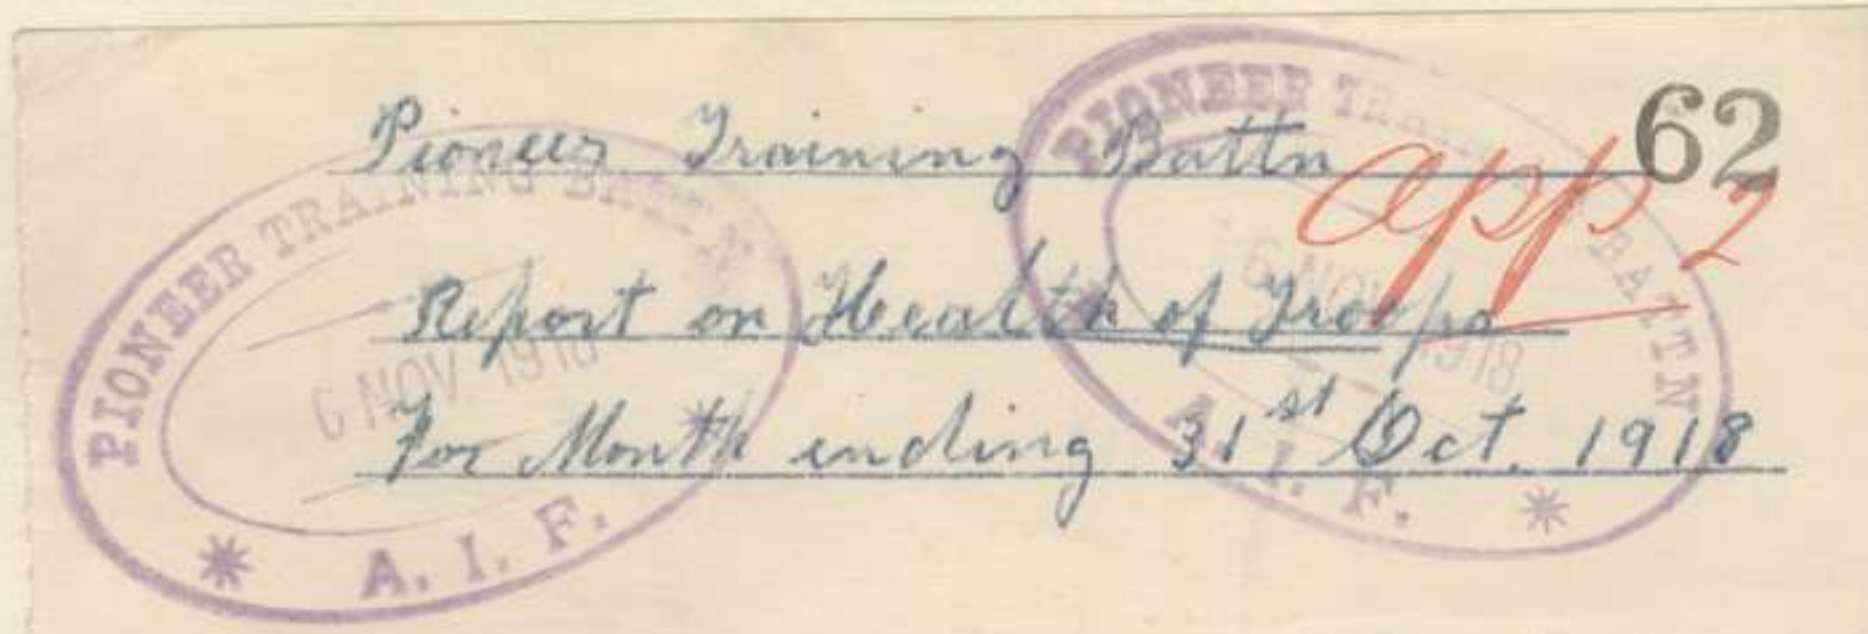 62
Pioneer Training Battn
app 2
Report on Health of Troops
For Month ending 31st Oct. 1918
PIONEER TRAINING BATTN
6 NOV 1918
A. I. F.
PIONEER TRAINING BATTN
6 NOV 1918
A. I. F.